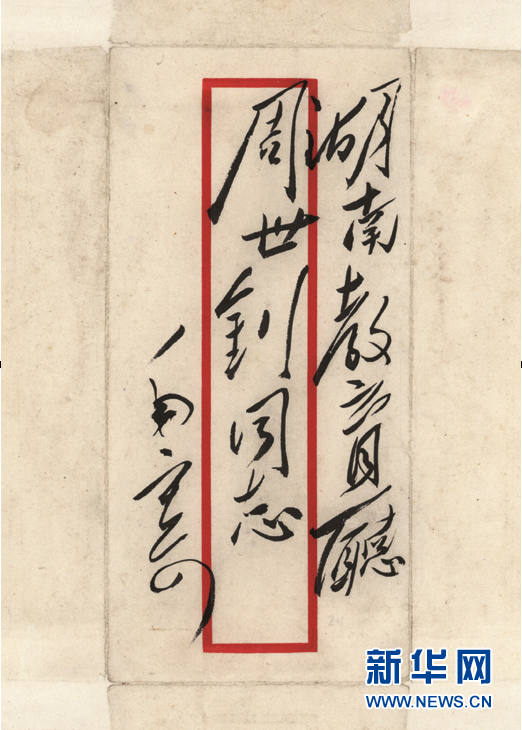 湖南教育廳
周世釗同志
新华网
WWW.NEWS.CN